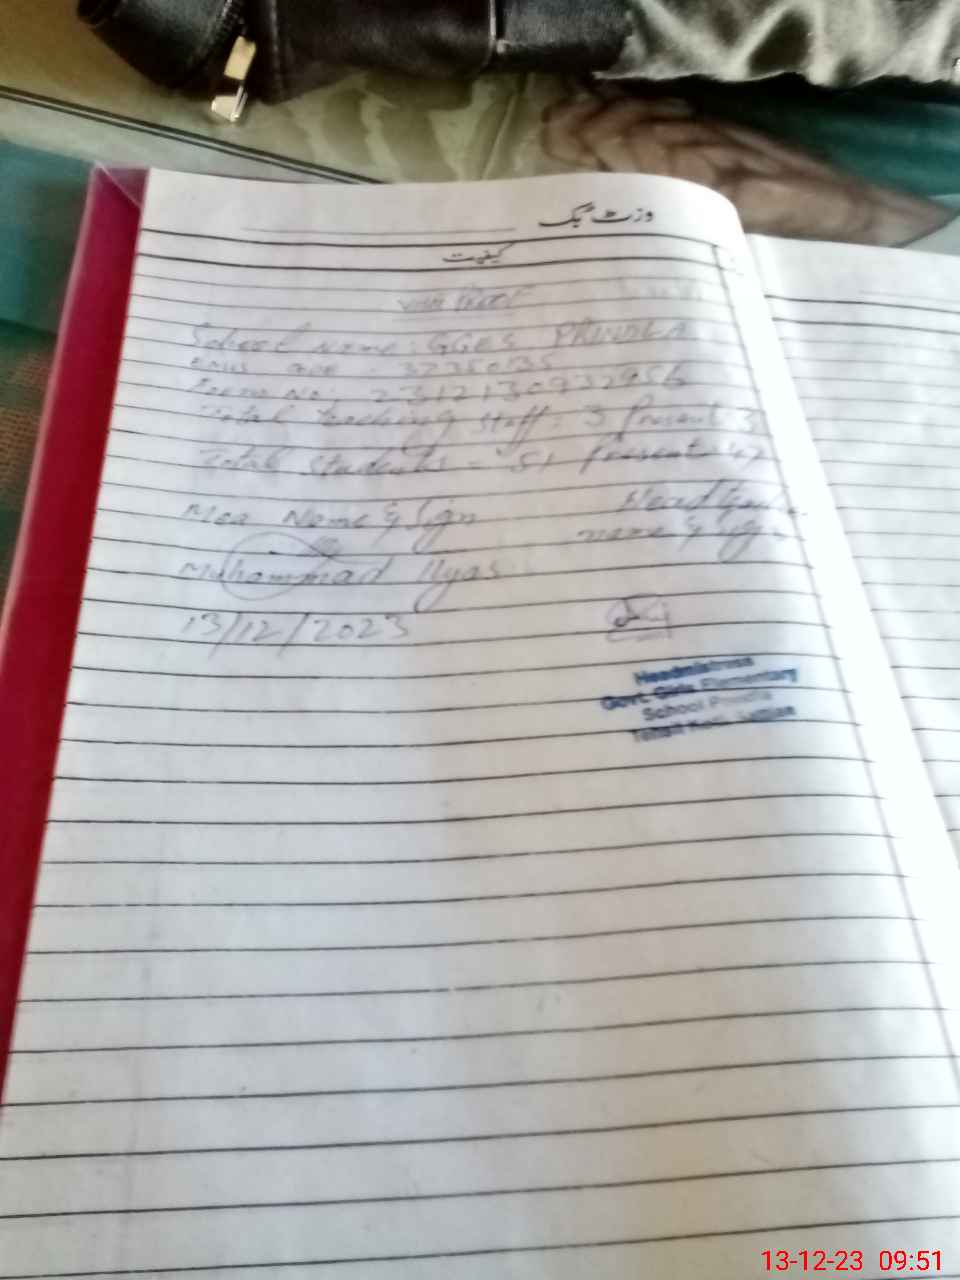 وزٹ بک
کیفیت
Visit Proof
School Name: GGES PRINDLA
EMIS Code: 37350135
231213093295
Total Teaching Staff: 3 Present 3
Total Students = 51 Present
Mea Name & Sign
Head
name & sign
Muhammad Ilyas
13/12/2023
Headmistress
Govt. Girls Elementary
School
Tehsil
13-12-23 09:51